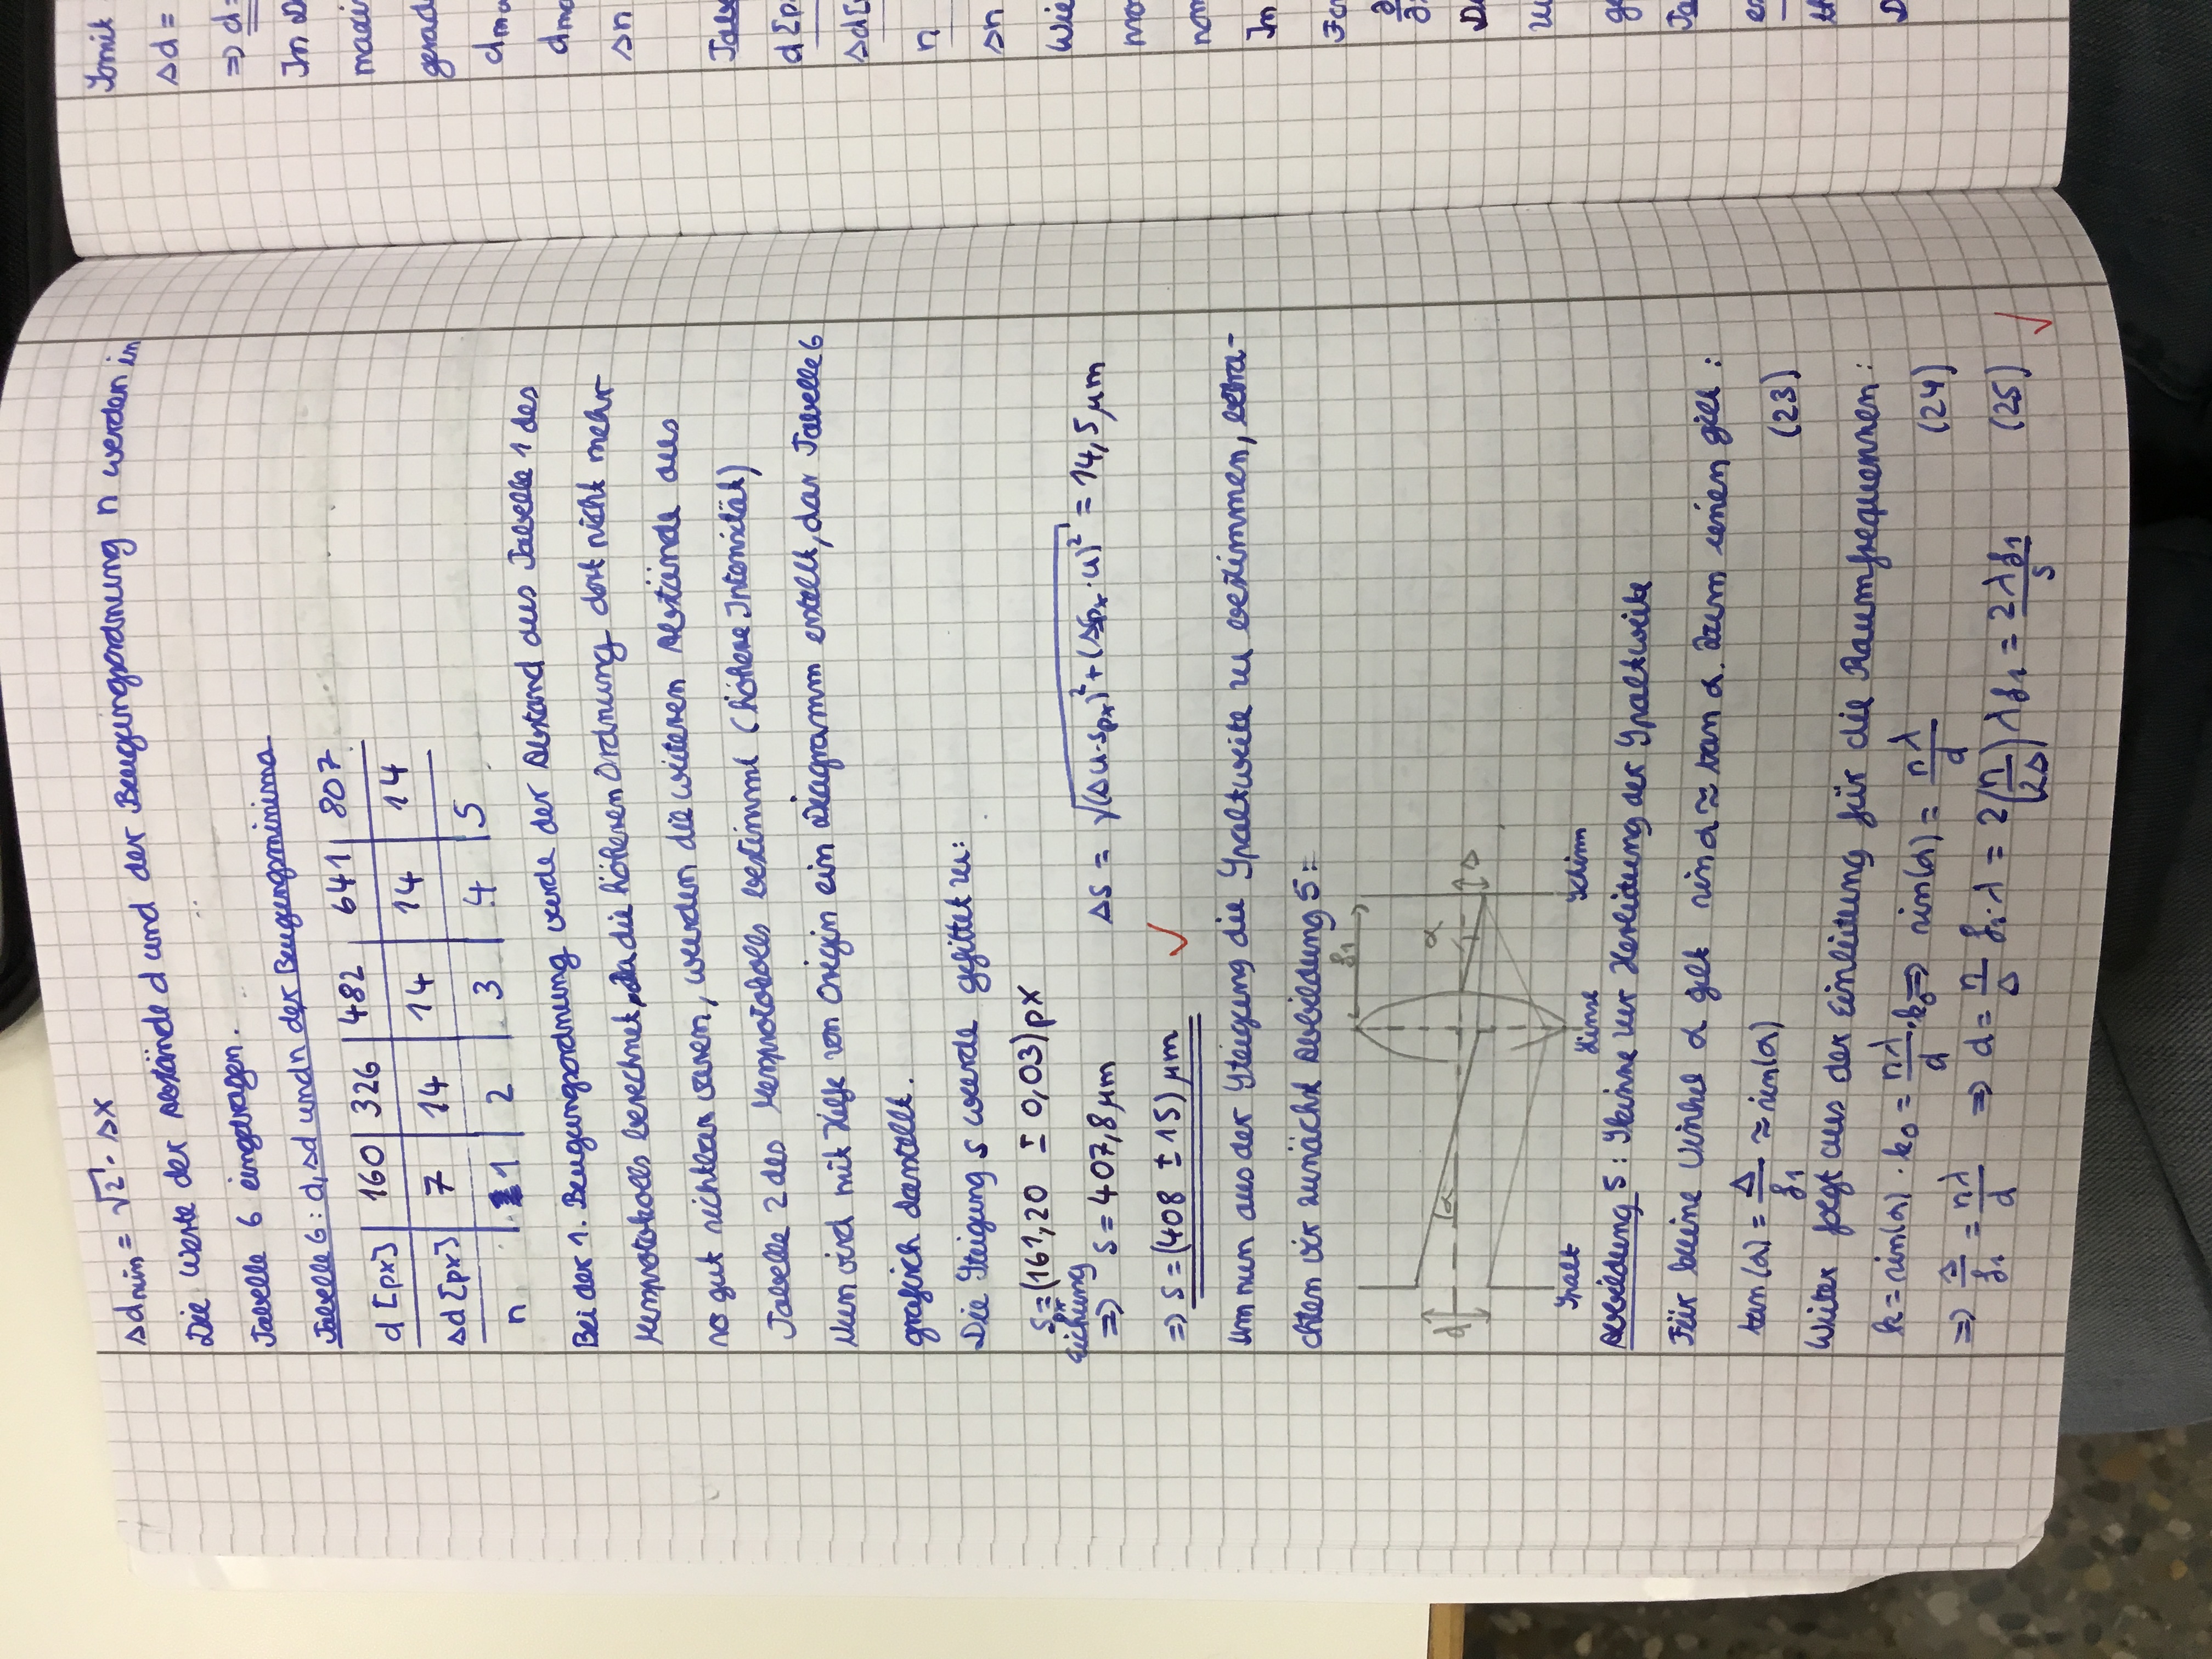 Δd_min = √2 · Δx
Die Werte der Abstände d und der Beugungsordnung n werden in
Tabelle 6 eingetragen.
Tabelle 6: d, Δd und n der Beugungsminima
d [px] | 160 | 326 | 482 | 641 | 807
Δd [px] | 7 | 14 | 14 | 14 | 14
n | 1 | 2 | 3 | 4 | 5
Bei der 1. Beugungsordnung wurde der Abstand aus Tabelle 1 des
Messprotokolls berechnet. Da die höheren Ordnung dort nicht mehr
so gut sichtbar waren, wurden die weiteren Abstände aus
Tabelle 2 des Messprotokolls bestimmt (höhere Intensität)
Nun wird mit Hilfe von Origin ein Diagramm erstellt, das Tabelle 6
grafisch darstellt.
Die Steigung s wurde gefittet zu:
s_px = (161,20 ± 0,03) px
Eichung
=> s = 407,8 μm Δs = √((Δu·s_px)² + (Δs_px·u)²) = 14,5 μm
=> s = (408 ± 15) μm ✓
Um nun aus der Steigung die Spaltweite zu bestimmen, betra-
chten wir zunächst Abbildung 5:
f₁
d α α Δ
Spalt Linse Schirm
Abbildung 5: Skizze zur Herleitung der Spaltweite
Für kleine Winkel α gilt sin α ≈ tan α. Zum einen gilt:
tan(α) = Δ/f₁ ≈ sin(α) (23)
Weiter folgt aus der Einleitung für die Raumfrequenzen:
k = sin(α) · k₀ = nλ/d · k₀ => sin(α) = nλ/d (24)
=> Δ/f₁ = nλ/d => d = n/Δ f₁·λ = 2(n/2Δ) λf₁ = 2λf₁/s (25) ✓
Somit
Δd =
=> d =
In D
maxi
gerad
Δn
Tabe
d [p
Δd [
n
Δn
Wie
In